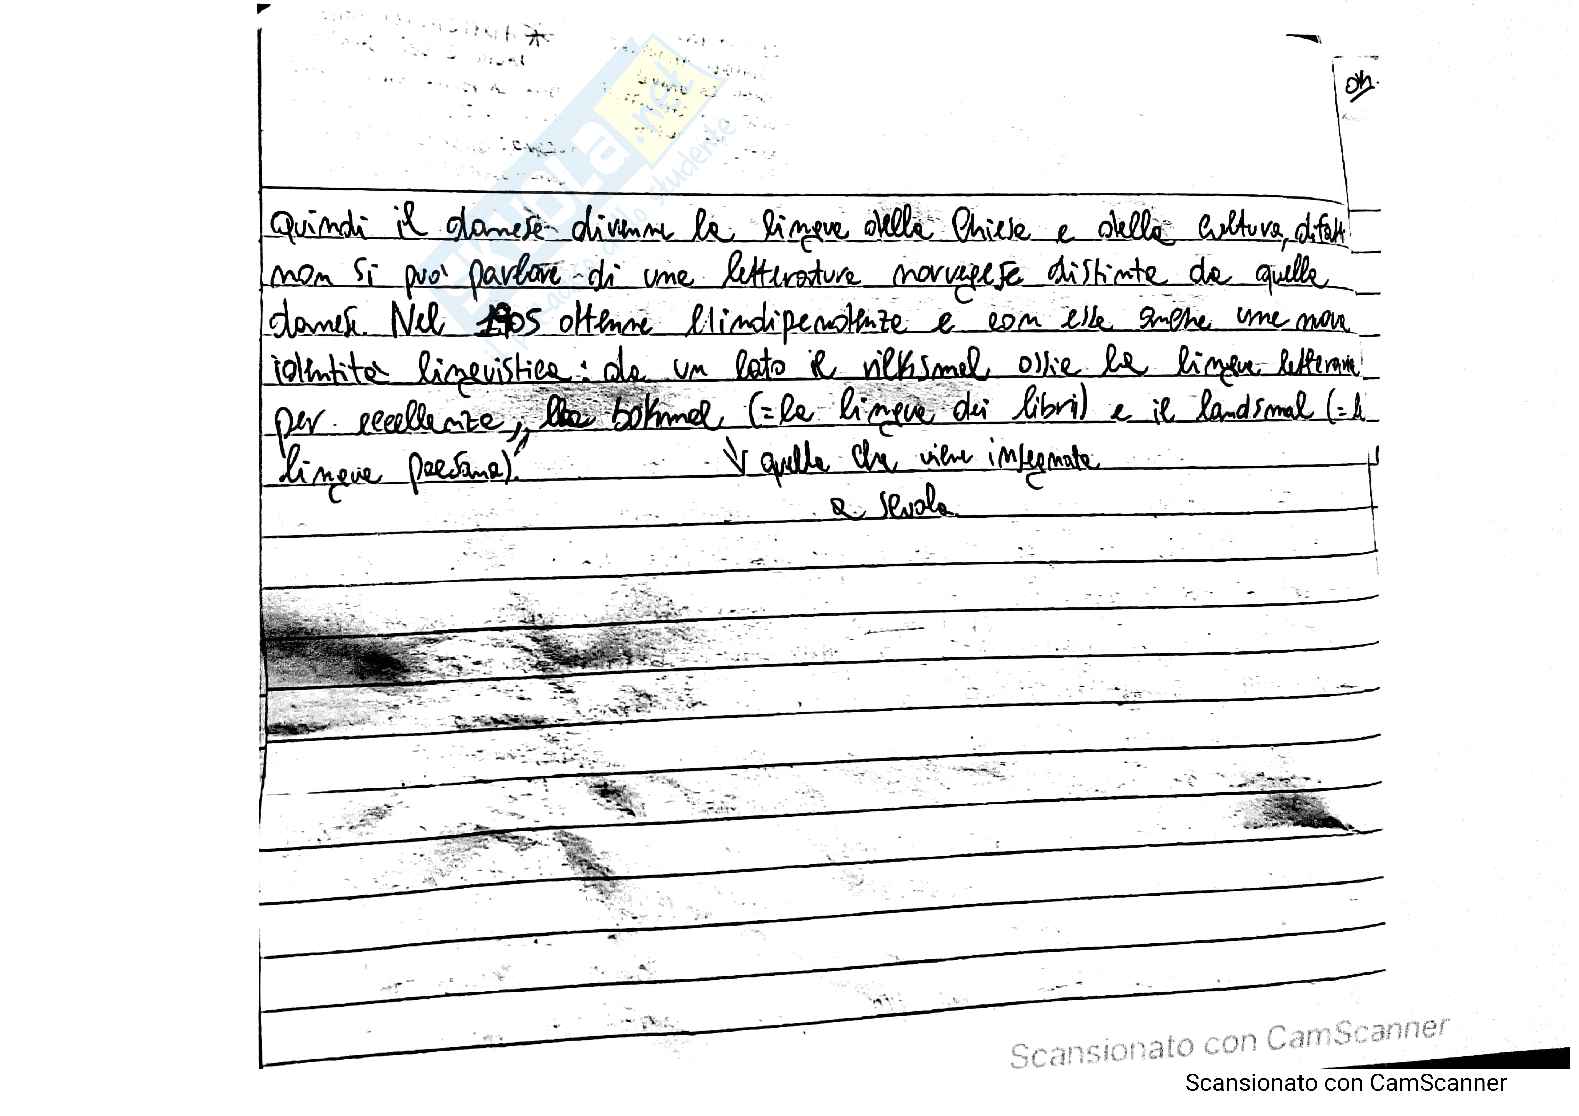 SKUOLA.net
Quindi il danese divenne la lingua della Chiesa e della cultura, difatti
non si può parlare di una letteratura norvegese distinta da quella
danese. Nel 1905 ottenne l'indipendenza e con essa anche una nova
identità linguistica: da un lato il riksmal ossia la lingua letteraria
per eccellenza, bokmal (= la lingua dei libri) e il landsmal (= la
lingua paesana).
↓ quella che viene insegnata
a scuola
Scansionato con CamScanner
Scansionato con CamScanner